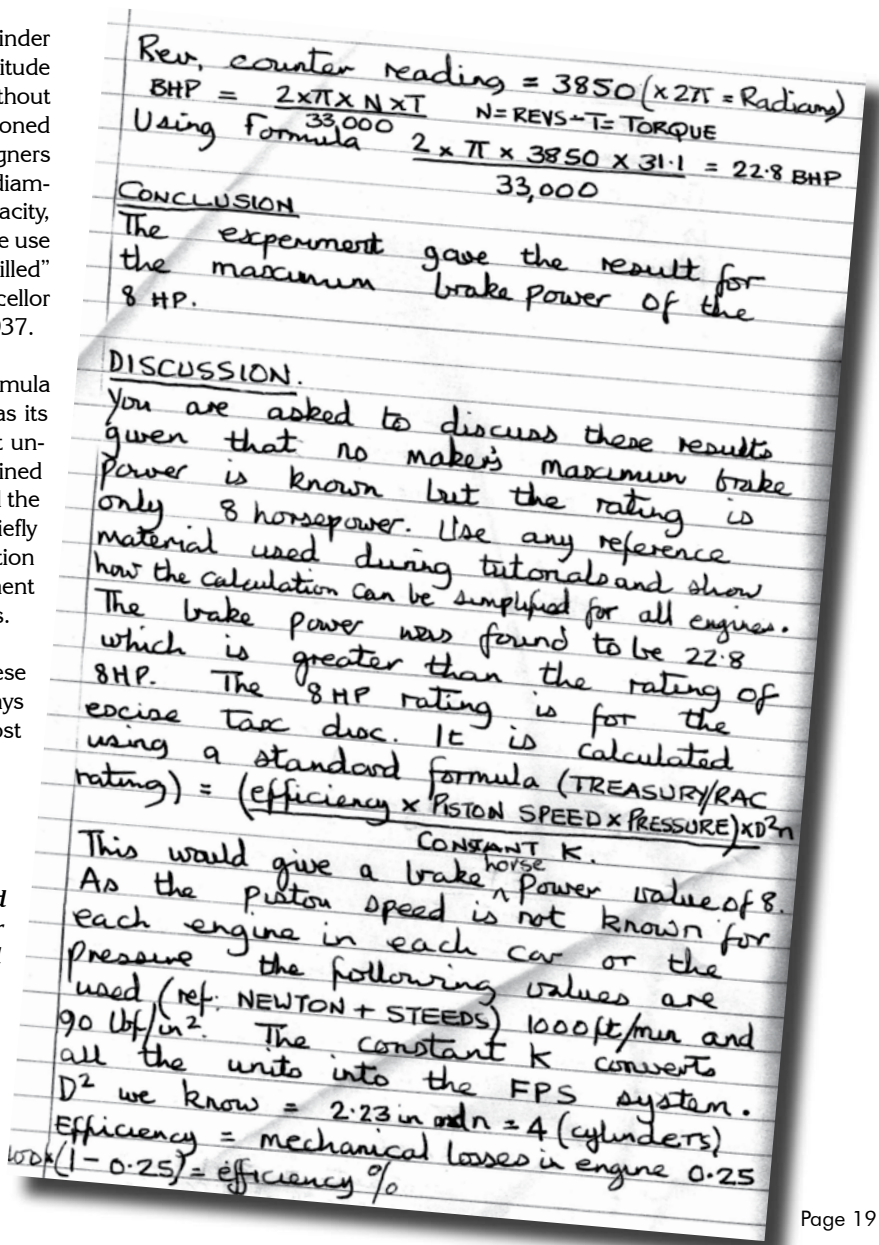 inder
itude
thout
oned
gners
diam-
acity,
e use
illed"
cellor
937.
mula
as its
t un-
ined
d the
iefly
tion
nent
s.
ese
ays
ost
d
r
Rev, counter reading = 3850 (×2π = Radians)
BHP = 2×π×N×T / 33,000 N=REVS-T=TORQUE
Using Formula 2 × π × 3850 × 31·1 / 33,000 = 22·8 BHP
CONCLUSION
The experiment gave the result for
the maximum brake power of the
8 HP.
DISCUSSION.
You are asked to discuss these results
given that no maker's maximum brake
power is known but the rating is
only 8 horsepower. Use any reference
material used during tutorials and show
how the calculation can be simplified for all engines.
The brake power was found to be 22·8
which is greater than the rating of
8HP. The 8HP rating is for the
excise tax disc. It is calculated
using a standard formula (TREASURY/RAC
rating) = (efficiency × PISTON SPEED × PRESSURE)×D²n
CONSTANT K.
This would give a brake horse power value of 8.
As the piston speed is not known for
each engine in each car or the
pressure the following values are
used (ref: NEWTON + STEEDS) 1000ft/min and
90 lbf/in². The constant K converts
all the units into the FPS system.
D² we know = 2·23 in and n = 4 (cylinders)
Efficiency = mechanical losses in engine 0·25
100×(1-0·25)= efficiency %
Page 19